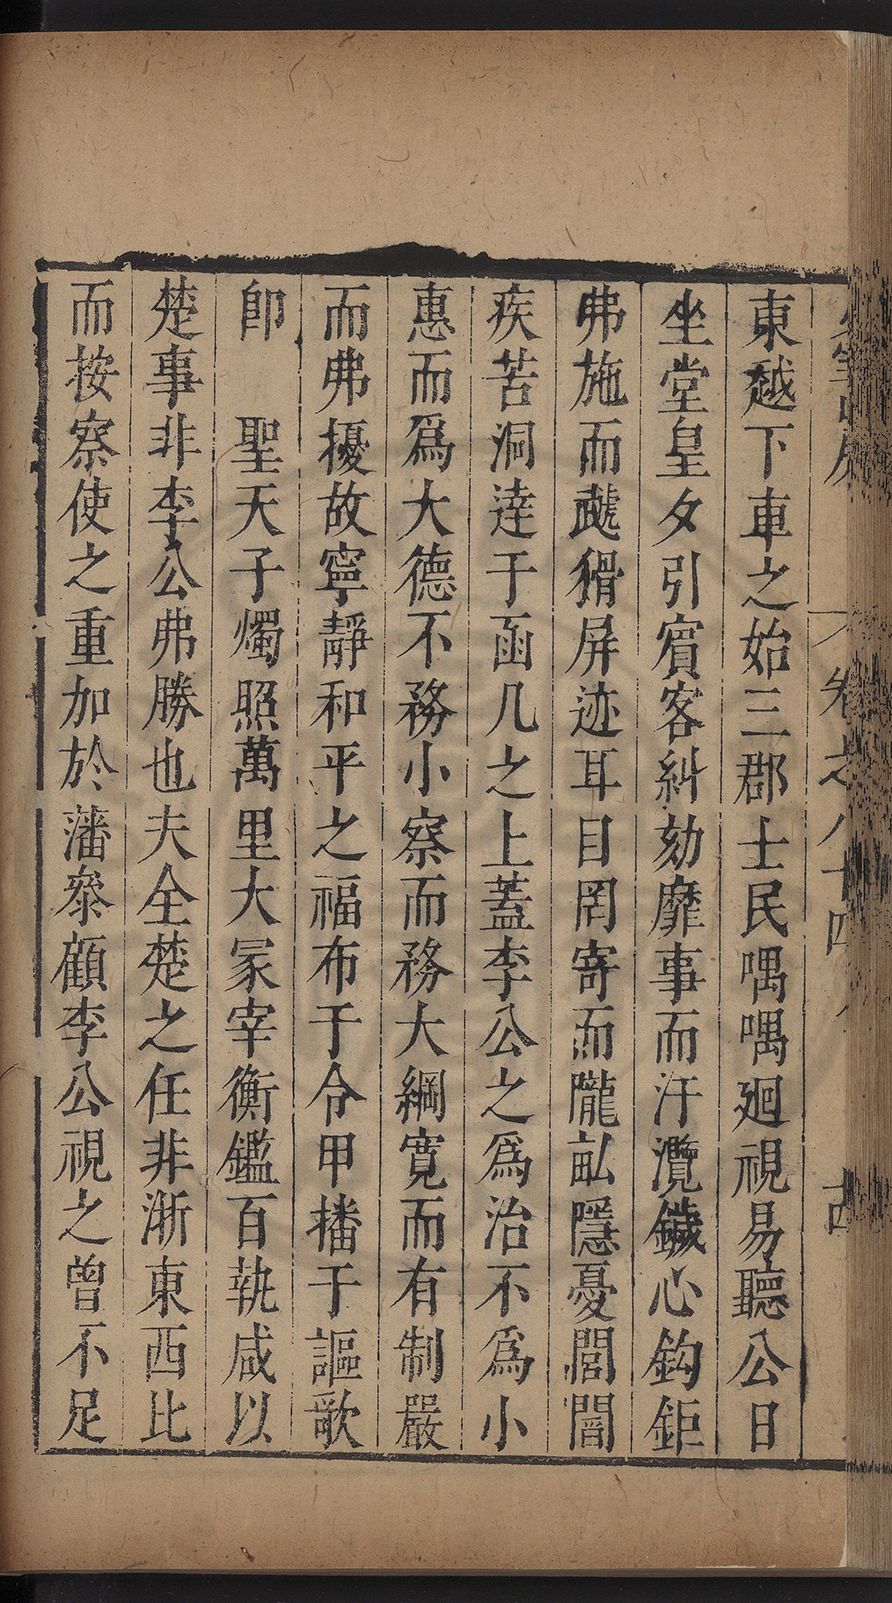 卷之八十四
東越下車之始三郡士民喁喁廻視易聽公日
坐堂皇夕引賓客糾劾靡事而汗灠鐬心鈎鉅
弗施而虣猾屏迹耳目罔寄而隴畝隱憂閭閻
疾苦洞達于函几之上蓋李公之爲治不爲小
惠而爲大德不務小察而務大綱寛而有制嚴
而弗擾故寧靜和平之福布于令甲播于謳歌
卽　聖天子燭照萬里大冢宰衡鑑百執咸以
楚事非李公弗勝也夫全楚之任非浙東西比
而按察使之重加於藩叅顧李公視之曾不足